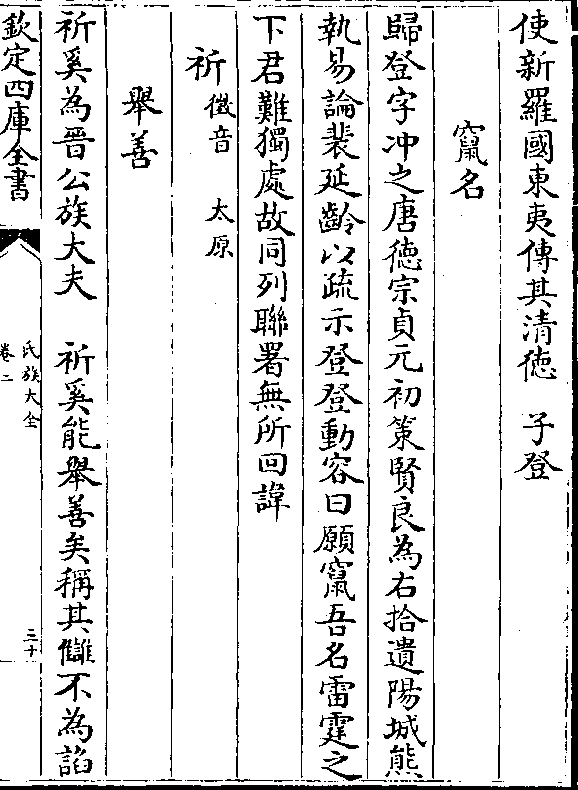 使新羅國東夷傳其清徳　子登
竄名
歸登字冲之唐徳宗貞元初策賢良為右拾遺陽城熊
執易論裴延齡以疏示登登動容曰願竄吾名雷霆之
下君難獨處故同列聯署無所回諱
祈　徵音　太原
舉善
祈奚為晉公族大夫　祈奚能舉善矣稱其讎不為諂
欽定四庫全書
氏族大全
卷二
三十